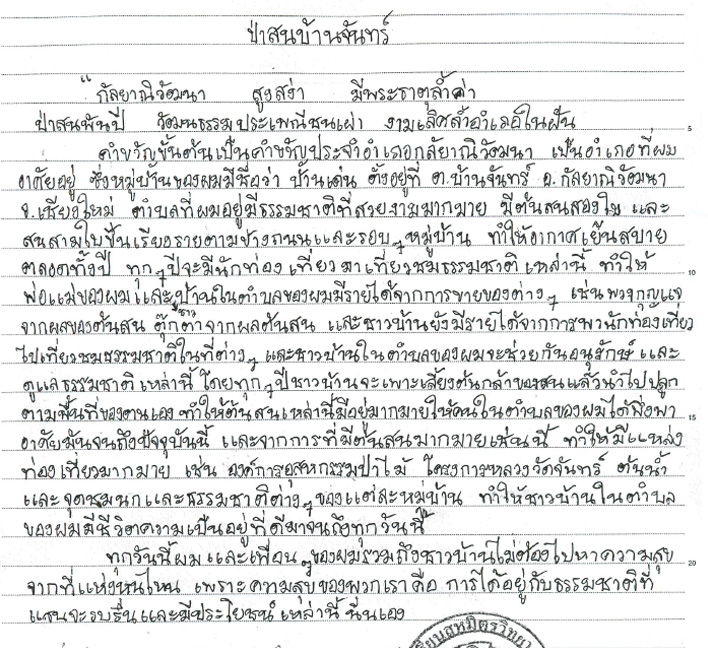 ป่าสนบ้านจันทร์
"กัลยาณิวัฒนา สูงสง่า มีพระธาตุล้ำค่า
ป่าสนพันปี วัฒนธรรมประเพณีชนเผ่า งามเลิศล้ำอำเภอในฝัน
คำขวัญขั้นต้นเป็นคำขวัญประจำอำเภอกัลยาณิวัฒนา เป็นอำเภอที่ผม
อาศัยอยู่ ซึ่งหมู่บ้านของผมมีชื่อว่า บ้านเด่น ตั้งอยู่ที่ ต.บ้านจันทร์ อ.กัลยาณิวัฒนา
จ.เชียงใหม่ ตำบลที่ผมอยู่มีธรรมชาติที่สวยงามมากมาย มีต้นสนสองใบ และ
สนสามใบขึ้นเรียงรายตามข้างถนนและรอบๆหมู่บ้าน ทำให้อากาศเย็นสบาย
ตลอดทั้งปี ทุกๆปีจะมีนักท่องเที่ยวมาเที่ยวชมธรรมชาติเหล่านี้ ทำให้
พ่อแม่ของผมและชาวบ้านในตำบลของผมมีรายได้จากการขายของต่างๆ เช่นพวงกุญแจ
จากผลของต้นสน ตุ๊กตาจากผลต้นสน และชาวบ้านยังมีรายได้จากการพานักท่องเที่ยว
ไปเที่ยวชมธรรมชาติในที่ต่างๆ และชาวบ้านในตำบลของผมจะช่วยกันอนุรักษ์และ
ดูแลธรรมชาติเหล่านี้ โดยทุกๆปีชาวบ้านจะเพาะเลี้ยงต้นกล้าของสนแล้วนำไปปลูก
ตามพื้นที่ของตนเอง ทำให้ต้นสนเหล่านี้มีอยู่มากมายให้คนในตำบลของผมได้พึ่งพา
อาศัยมันจนถึงปัจจุบันนี้ และจากการที่มีต้นสนมากมายเช่นนี้ ทำให้มีแหล่ง
ท่องเที่ยวมากมาย เช่น องค์การอุสหกรรมป่าไม้ โครงการหลวงวัดจันทร์ ต้นน้ำ
และจุดชมนกและธรรมชาติต่างๆของแต่ละหมู่บ้าน ทำให้ชาวบ้านในตำบล
ของผมมีชีวิตความเป็นอยู่ที่ดีมาจนถึงทุกวันนี้
ทุกวันนี้ผมและเพื่อนๆของผมรวมถึงชาวบ้านไม่ต้องไปหาความสุข
จากที่แห่งหนไหน เพราะความสุขของพวกเราคือ การได้อยู่กับธรรมชาติที่
แสนจะรบรื่นและมีประโยชน์เหล่านี้นี่นเอง
5
10
15
20